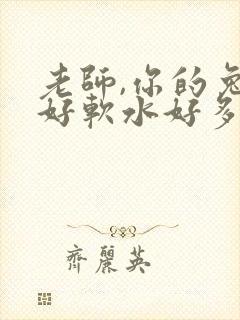 老師,你的兔
好軟水好多
齊麗英